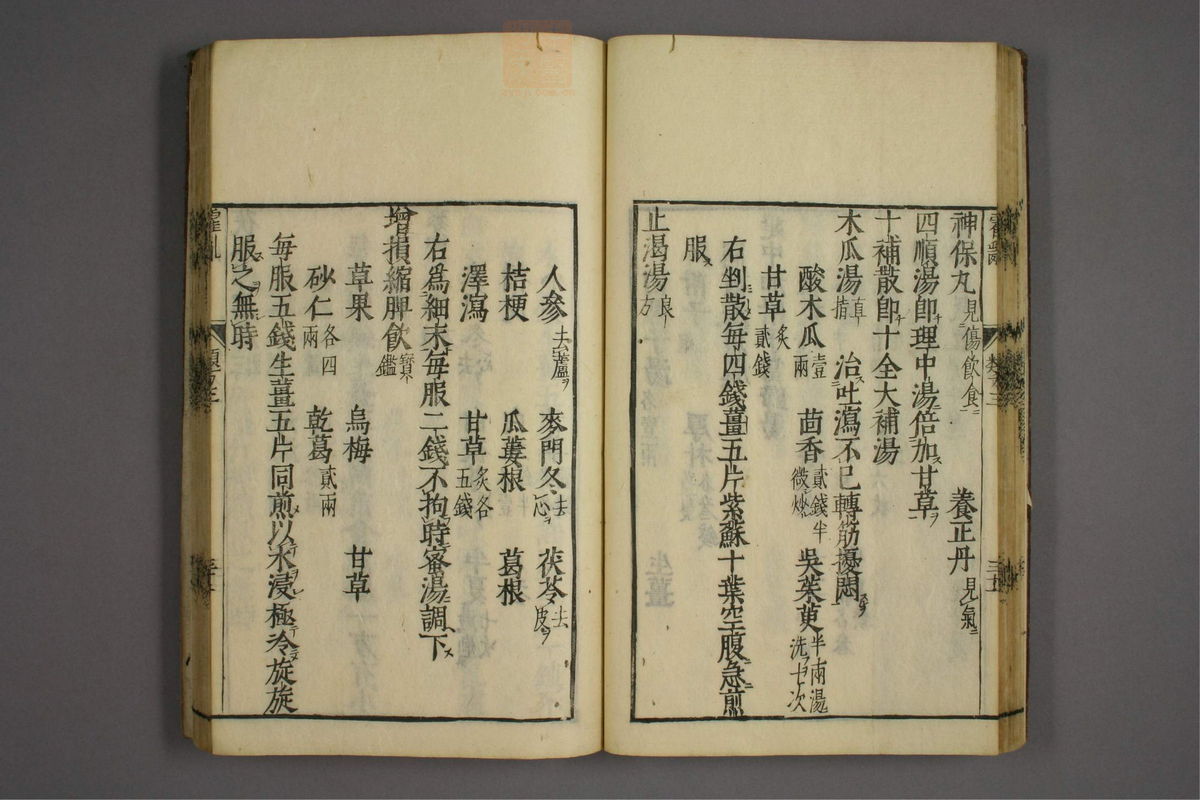 神保丸見傷飲食ニ 養正丹見氣ニ
四順湯即理中湯倍加甘草ヲ
十補散即十全大補湯
木瓜湯直指 治吐瀉不已轉筋擾悶
酸木瓜壹兩 茴香貳錢半微炒 吳茱萸半兩湯洗七次
甘草炙貳錢
右剉散每四錢薑五片紫蘇十葉空腹急煎
服
止渴湯良方
人參去蘆ヲ 麥門冬去心ヲ 茯苓去皮ヲ
桔梗 瓜蔞根 葛根
澤瀉 甘草炙各五錢
右爲細末每服二錢不拘時蜜湯調下
增損縮脾飲寶鑑
草果 烏梅 甘草
砂仁各四兩 乾葛貳兩
每服五錢生薑五片同煎以水浸極冷旋旋
服之無時
霍亂